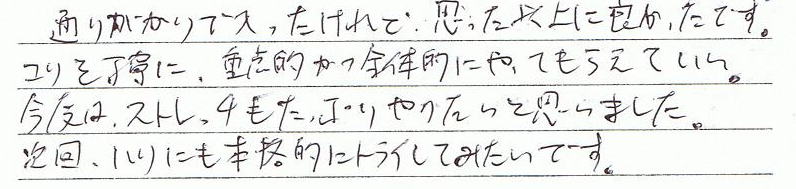 通りがかりで入ったけれど、思った以上に良かったです。
コリを丁寧に、重点的かつ全体的にやってもらえていい。
今度は、ストレッチもたっぷりやりたいと思いました。
次回、ハリにも本格的にトライしてみたいです。